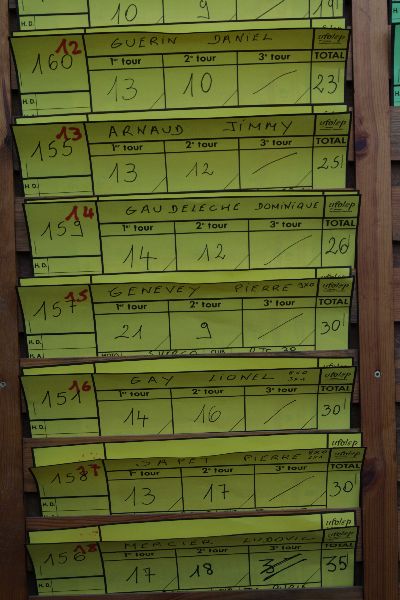 10 9 19
12 GUERIN DANIEL ufolep
160 1er tour 2e tour 3e tour TOTAL
H.D. 13 10 23
13 ARNAUD JIMMY ufolep
155 1er tour 2e tour 3e tour TOTAL
H.D. 13 12 25
14 GAUDELECHE DOMINIQUE ufolep
159 1er tour 2e tour 3e tour TOTAL
H.D. 14 12 26
15 GENEVEY PIERRE 3X0 ufolep
157 1er tour 2e tour 3e tour TOTAL
H.D. 21 9 30
H.A.
16 GAY LIONEL ufolep
151 1er tour 2e tour 3e tour TOTAL
H.D. 14 16 30
ufolep
17 SAPET PIERRE ufolep
158 1er tour 2e tour 3e tour TOTAL
H.D. 13 17 30
ufolep
18 MERCIER LUDOVIC ufolep
156 1er tour 2e tour 3e tour TOTAL
H.D. 17 18 3 35